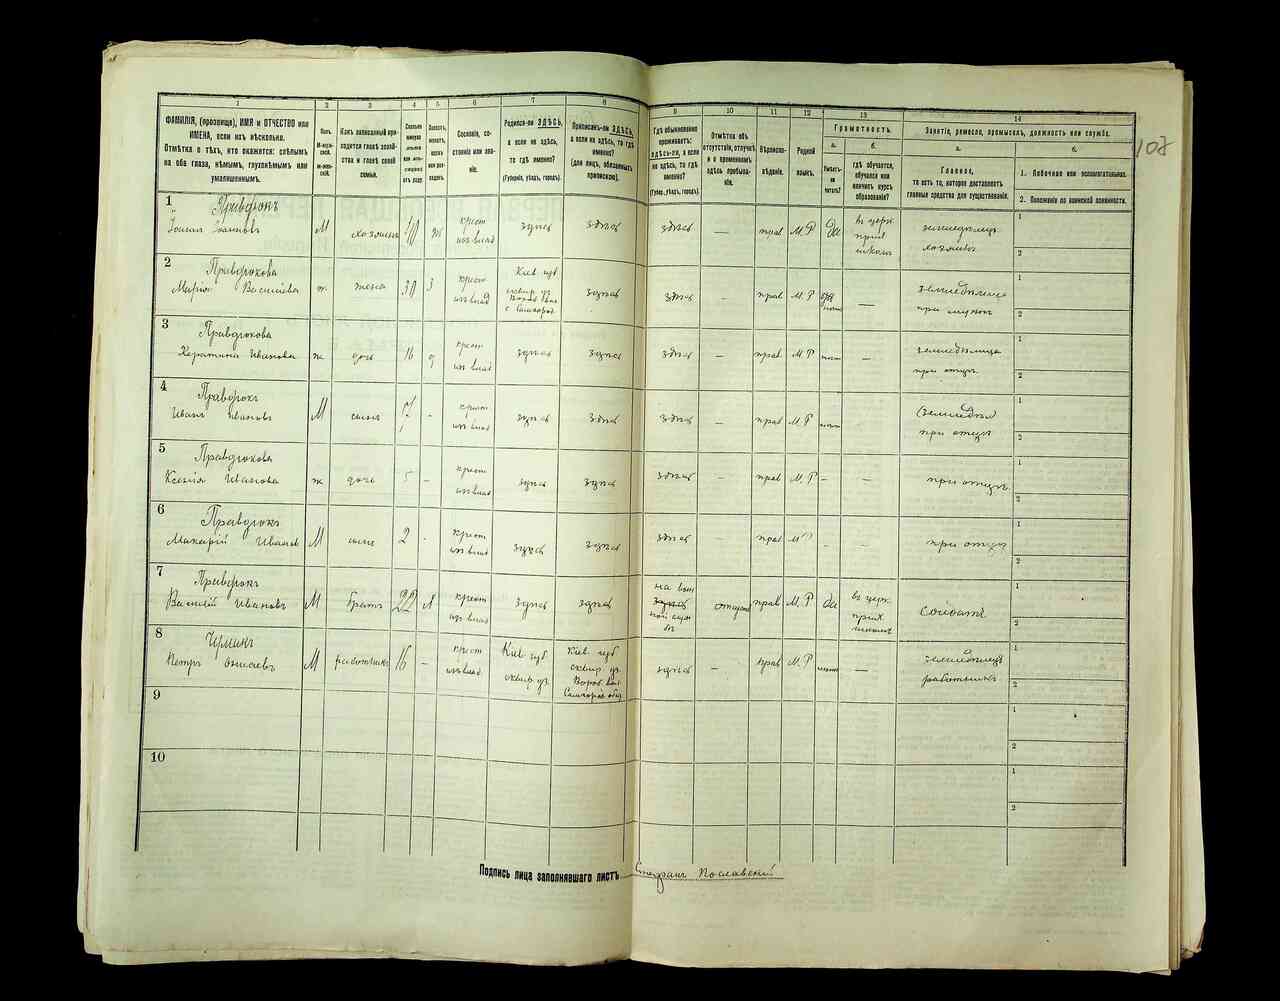 1
2
3
4
5
6
7
8
ФАМИЛІЯ, (прозвище), ИМЯ и ОТЧЕСТВО или
ИМЕНА, если ихъ нѣсколько.
Отмѣтка о тѣхъ, кто окажется: слѣпымъ
на оба глаза, нѣмымъ, глухонѣмымъ или
умалишеннымъ.
Полъ.
М-муж-
ской.
Ж-жен-
скій.
Какъ записанный при-
ходится главѣ хозяй-
ства и главѣ своей
семьи.
Сословіе, со-
стояніе или зва-
ніе.
Родился-ли ЗДѢСЬ,
а если не здѣсь,
то гдѣ именно?
(Губернія, уѣздъ, городъ).
Приписанъ-ли ЗДѢСЬ,
а если не здѣсь, то гдѣ
именно?
(для лицъ, обязанныхъ
припискою).
9
10
11
12
13
14
Гдѣ обыкновенно
проживаетъ:
ЗДѢСЬ-ЛИ, а если
не здѣсь, то гдѣ
именно?
(Губер., уѣздъ, городъ).
Отмѣтка объ
отсутствіи, отлучкѣ
и о временномъ
здѣсь пребыва-
ніи.
Вѣроиспо-
вѣданіе.
Родной
языкъ.
Грамотность.
а.
Умѣетъ-
ли
читать?
б.
гдѣ обучается,
обучался или
кончилъ курсъ
образованія?
Занятіе, ремесло, промыселъ, должность или служба.
а.
Главное,
то есть то, которое доставляетъ
главныя средства для существованія.
б.
1. Побочное или вспомогательное.
2. Положеніе по воинской повинности.
107
1
Правдюкъ
Іоаннъ Іоанновъ М хозяинъ 40 ж крест изъ влад здѣсь здѣсь здѣсь — прав М.Р да въ церк. прих школѣ земледѣлецъ хозяинъ
2
Правдюкова
Марія Василіева ж жена 38 з крест изъ влад Кіев губ сквир уѣ с Самгород здѣсь здѣсь — прав М.Р — земледѣлица при мужѣ
3
Правдюкова
Иванова ж дочь 16 д крест изъ влад здѣсь здѣсь здѣсь — прав М.Р — земледѣлица при отцѣ
4
Правдюкъ
Иванъ Ивановъ М сынъ - крест изъ влад здѣсь здѣсь здѣсь — прав М.Р при отцѣ
5
Правдюкова
Ксенія Иванова ж дочь 5 - крест изъ влад здѣсь здѣсь здѣсь — прав М.Р - — при отцѣ
6
Правдюкъ
Макарій Ивановъ М сынъ 2 - крест изъ влад здѣсь здѣсь здѣсь — прав М.Р - - при отцѣ
7
Правдюкъ
Василій Ивановъ М братъ 22 крест изъ влад здѣсь здѣсь на воен ной служ бѣ прав М.Р да въ церк. прих школѣ солдатъ
8
Петръ М работникъ 16 - крест изъ влад Кіев губ сквир уѣ Кіев губ сквир уѣ здѣсь — прав М.Р — земледѣлецъ работникъ
9
10
Подпись лица заполнявшаго листъ Пославскій